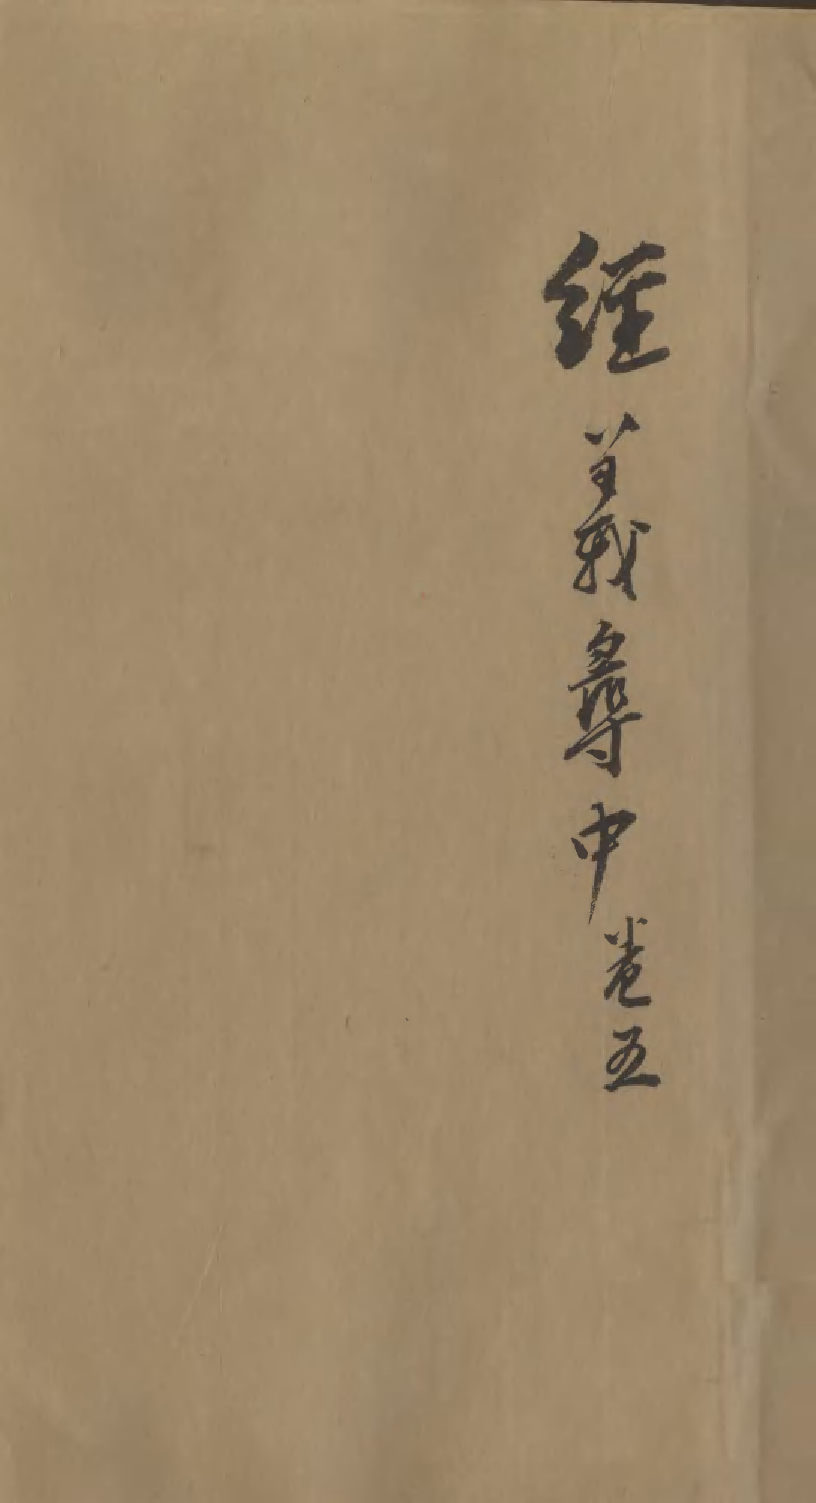 經義尋中卷五